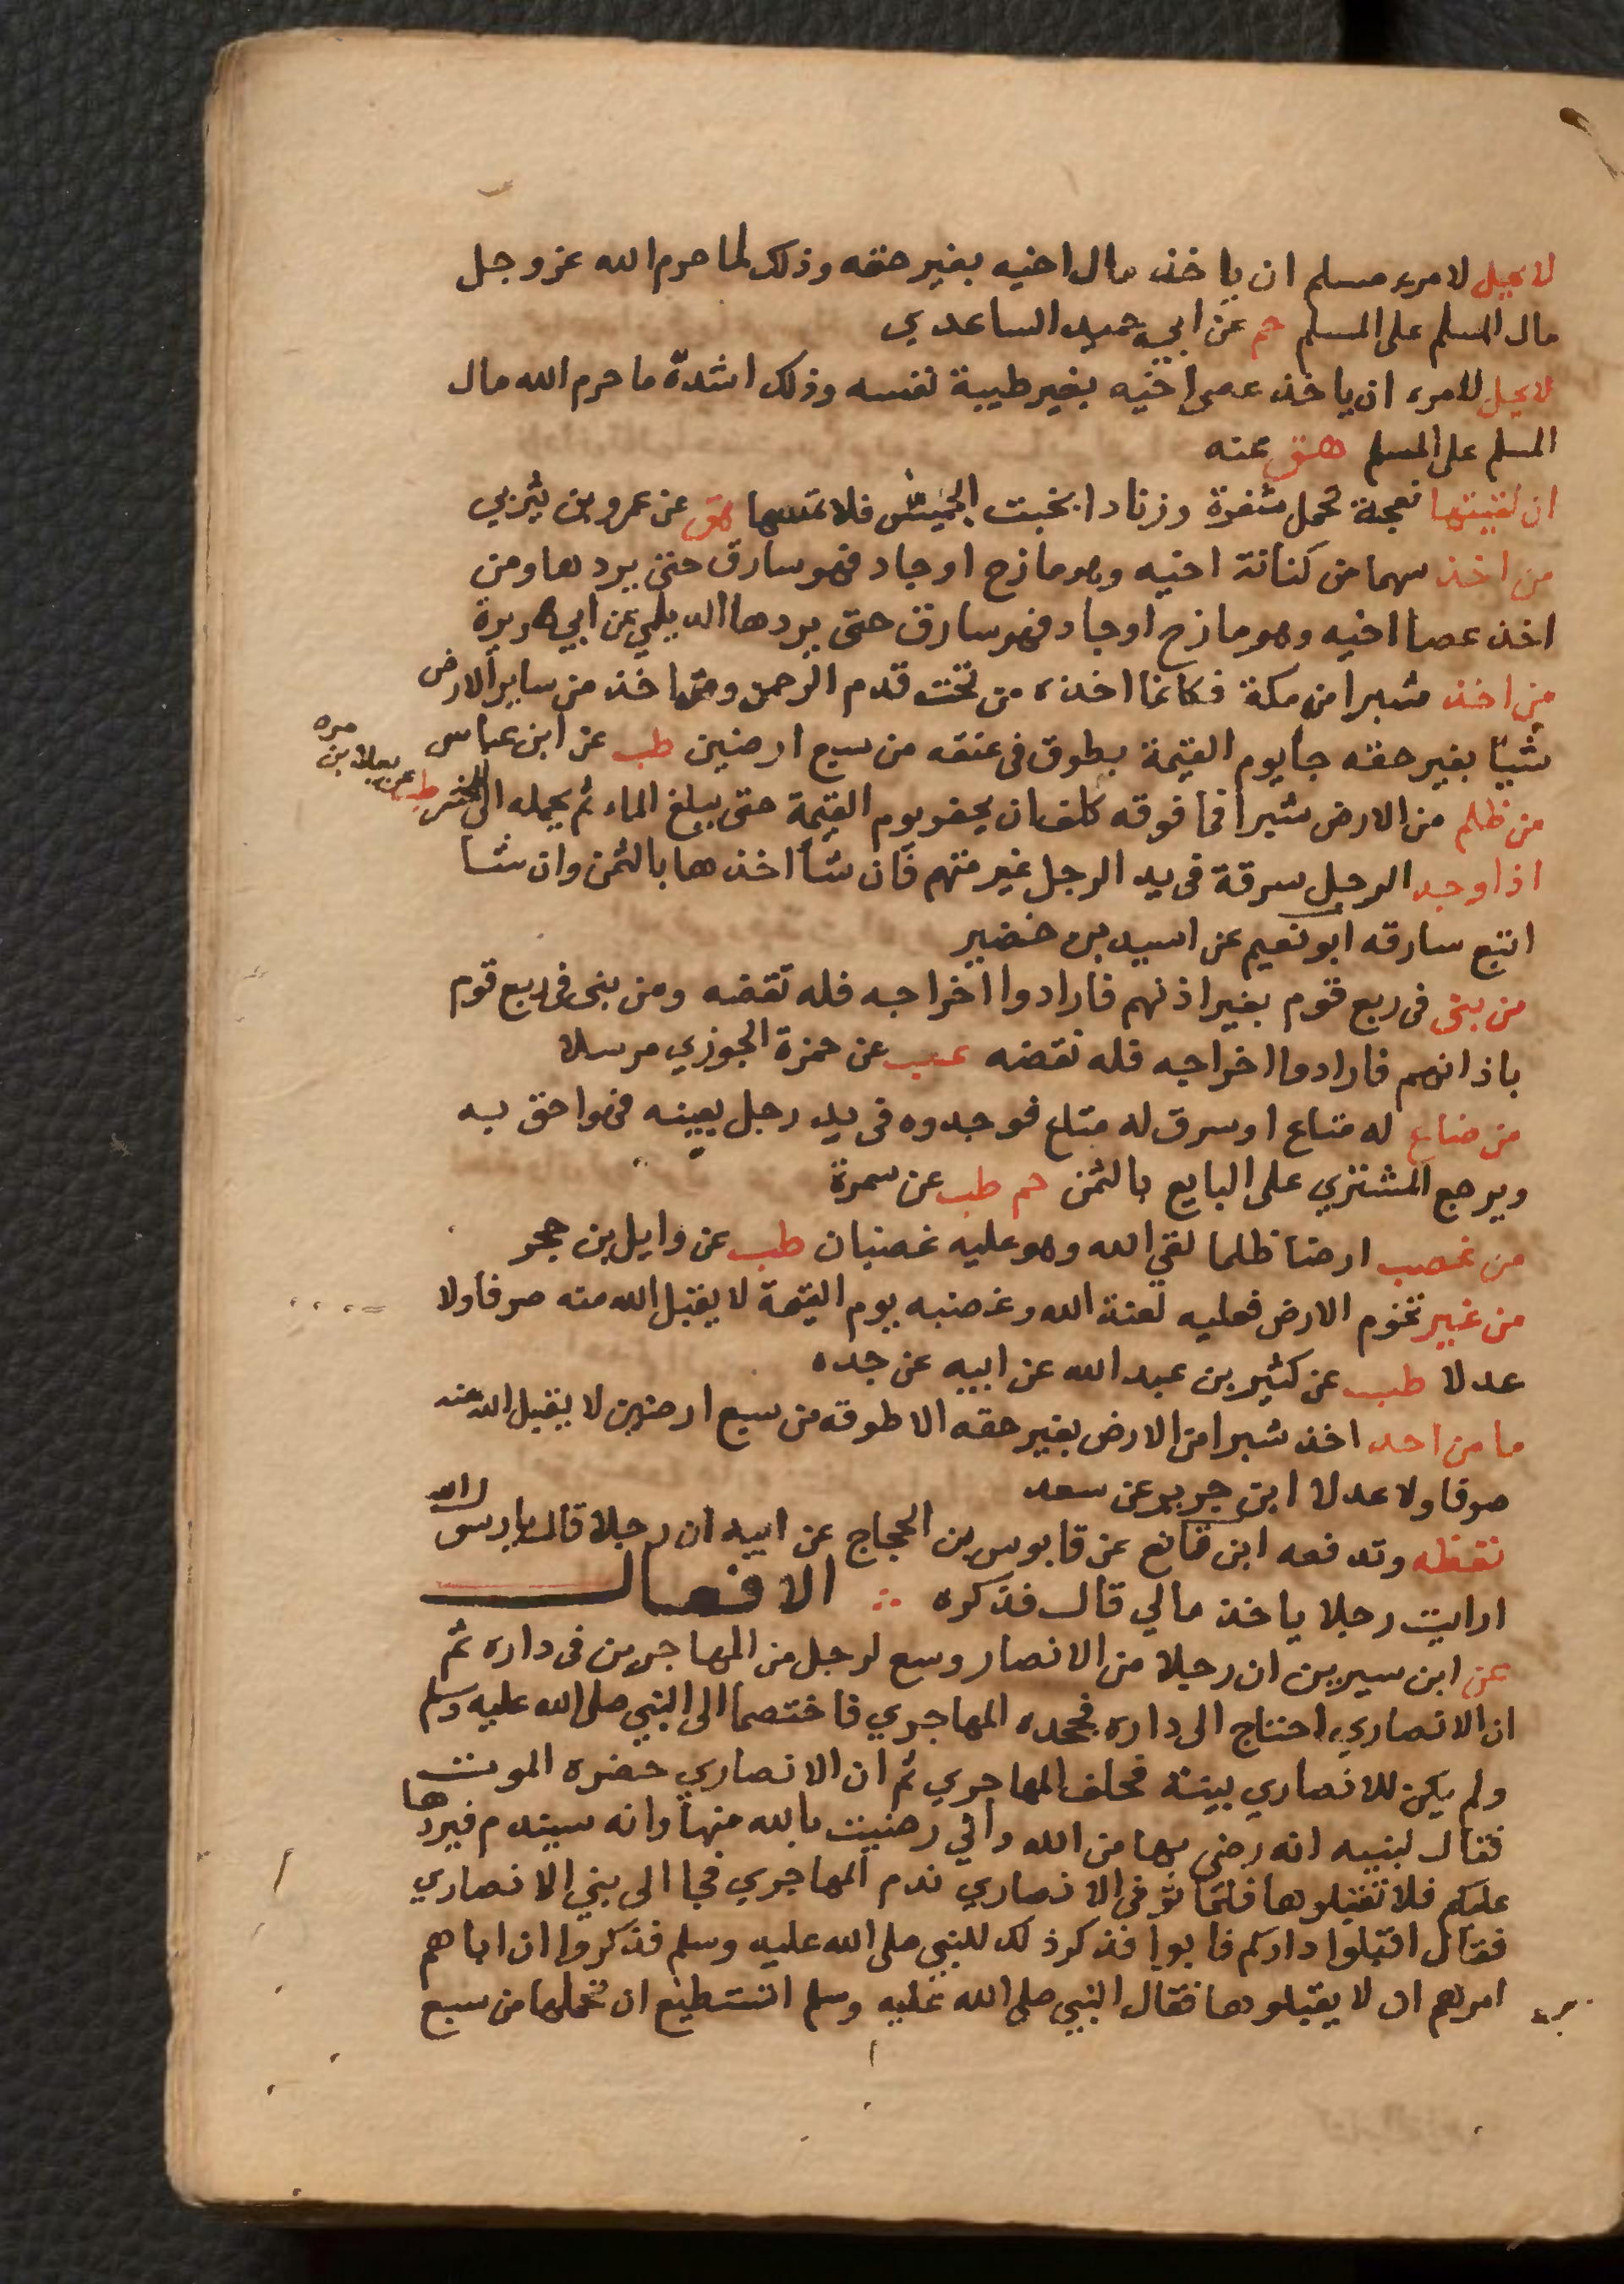 لا يحل لامرء مسلم ان ياخذ مال اخيه بغير حقه وذلك لما حرم الله عز وجل
مال المسلم على المسلم حم عن ابي حميد الساعدي
لا يحل للامرء ان ياخذ عصى اخيه بغير طيبة نفسه وذلك اشدة ما حرم الله مال
المسلم على المسلم هق عنه
ان لقيتها نعجة تحمل شفرة وزنادا بخبت الجميش فلا تمسها هق عن عمرو بن يثربي
من اخذ سهما من كنانة اخيه وهو مازح او جاد فهو سارق حتى يردها ومن
اخذ عصا اخيه وهو مازح او جاد فهو سارق حتى يردها الديلمي عن ابي هريرة
من اخذ شبرا من مكة فكانما اخذه من تحت قدم الرحمن ومن اخذ من ساير الارض
شيا بغير حقه جا يوم القيمة يطوق في عنقه من سبع ارضين طب عن ابن عباس
من ظلم من الارض شبرا فما فوقه كلف ان يحفر يوم القيمة حتى يبلغ الماء ثم يحمله الى المحشر طب عن يعلا بن مره
اذا وجد الرجل سرقة في يد الرجل غير متهم فان شا اخذها بالثمن وان شا
اتبع سارقه ابو نعيم عن اسيد بن خضير
من بنى في ربع قوم بغير اذنهم فارادوا اخراجه فله نقضه ومن بنى في ربع قوم
باذانهم فارادوا اخراجه فله نقضه عب عن حمزة الجوزي مرسلا
من ضاع له متاع او سرق له متاع فوجدوه في يد رجل بعينه فهوا حق به
ويرجع المشتري على البايع بالثمن حم طب عن سمرة
من غصب ارضا ظلما لقي الله وهو عليه غضبان طب عن وايل بن حجر
من غير تخوم الارض فعليه لعنة الله وغضبه يوم القيمة لا يقبل الله منه صرفا ولا
عدلا طب عن كثير بن عبد الله عن ابيه عن جده
ما من احد اخذ شبرا من الارض بغير حقه الا طوقه من سبع ارضين لا يقبل الله منه
صرفا ولا عدلا ابن جرير عن سعد
تقظه وتدفعه ابن قانع عن قابوس بن الحجاج عن ابيه ان رجلا قال يا رسول الله
ارايت رجلا ياخذ مالي قال فذكره الافعال
عن ابن سيرين ان رجلا من الانصار وسع لرجل من المهاجرين في داره ثم
ان الانصاري احتاج الى داره فجحده المهاجري فاختصما الى النبي صلى الله عليه وسلم
ولم يكن للانصاري بينة فحلف المهاجري ثم ان الانصاري حضره الموت
فقال لبنيه انه رضى بها من الله واني رضيت بالله منها وانه سيندم فيردها
عليكم فلا تقبلوها فلما توفى الانصاري ندم المهاجري فجا الى بني الانصاري
فقال اقبلوا داركم فابوا فذكر ذلك للنبي صلى الله عليه وسلم فذكروا ان اباهم
امرهم ان لا يقبلوها فقال النبي صلى الله عليه وسلم اتستطيع ان تحملها من سبع